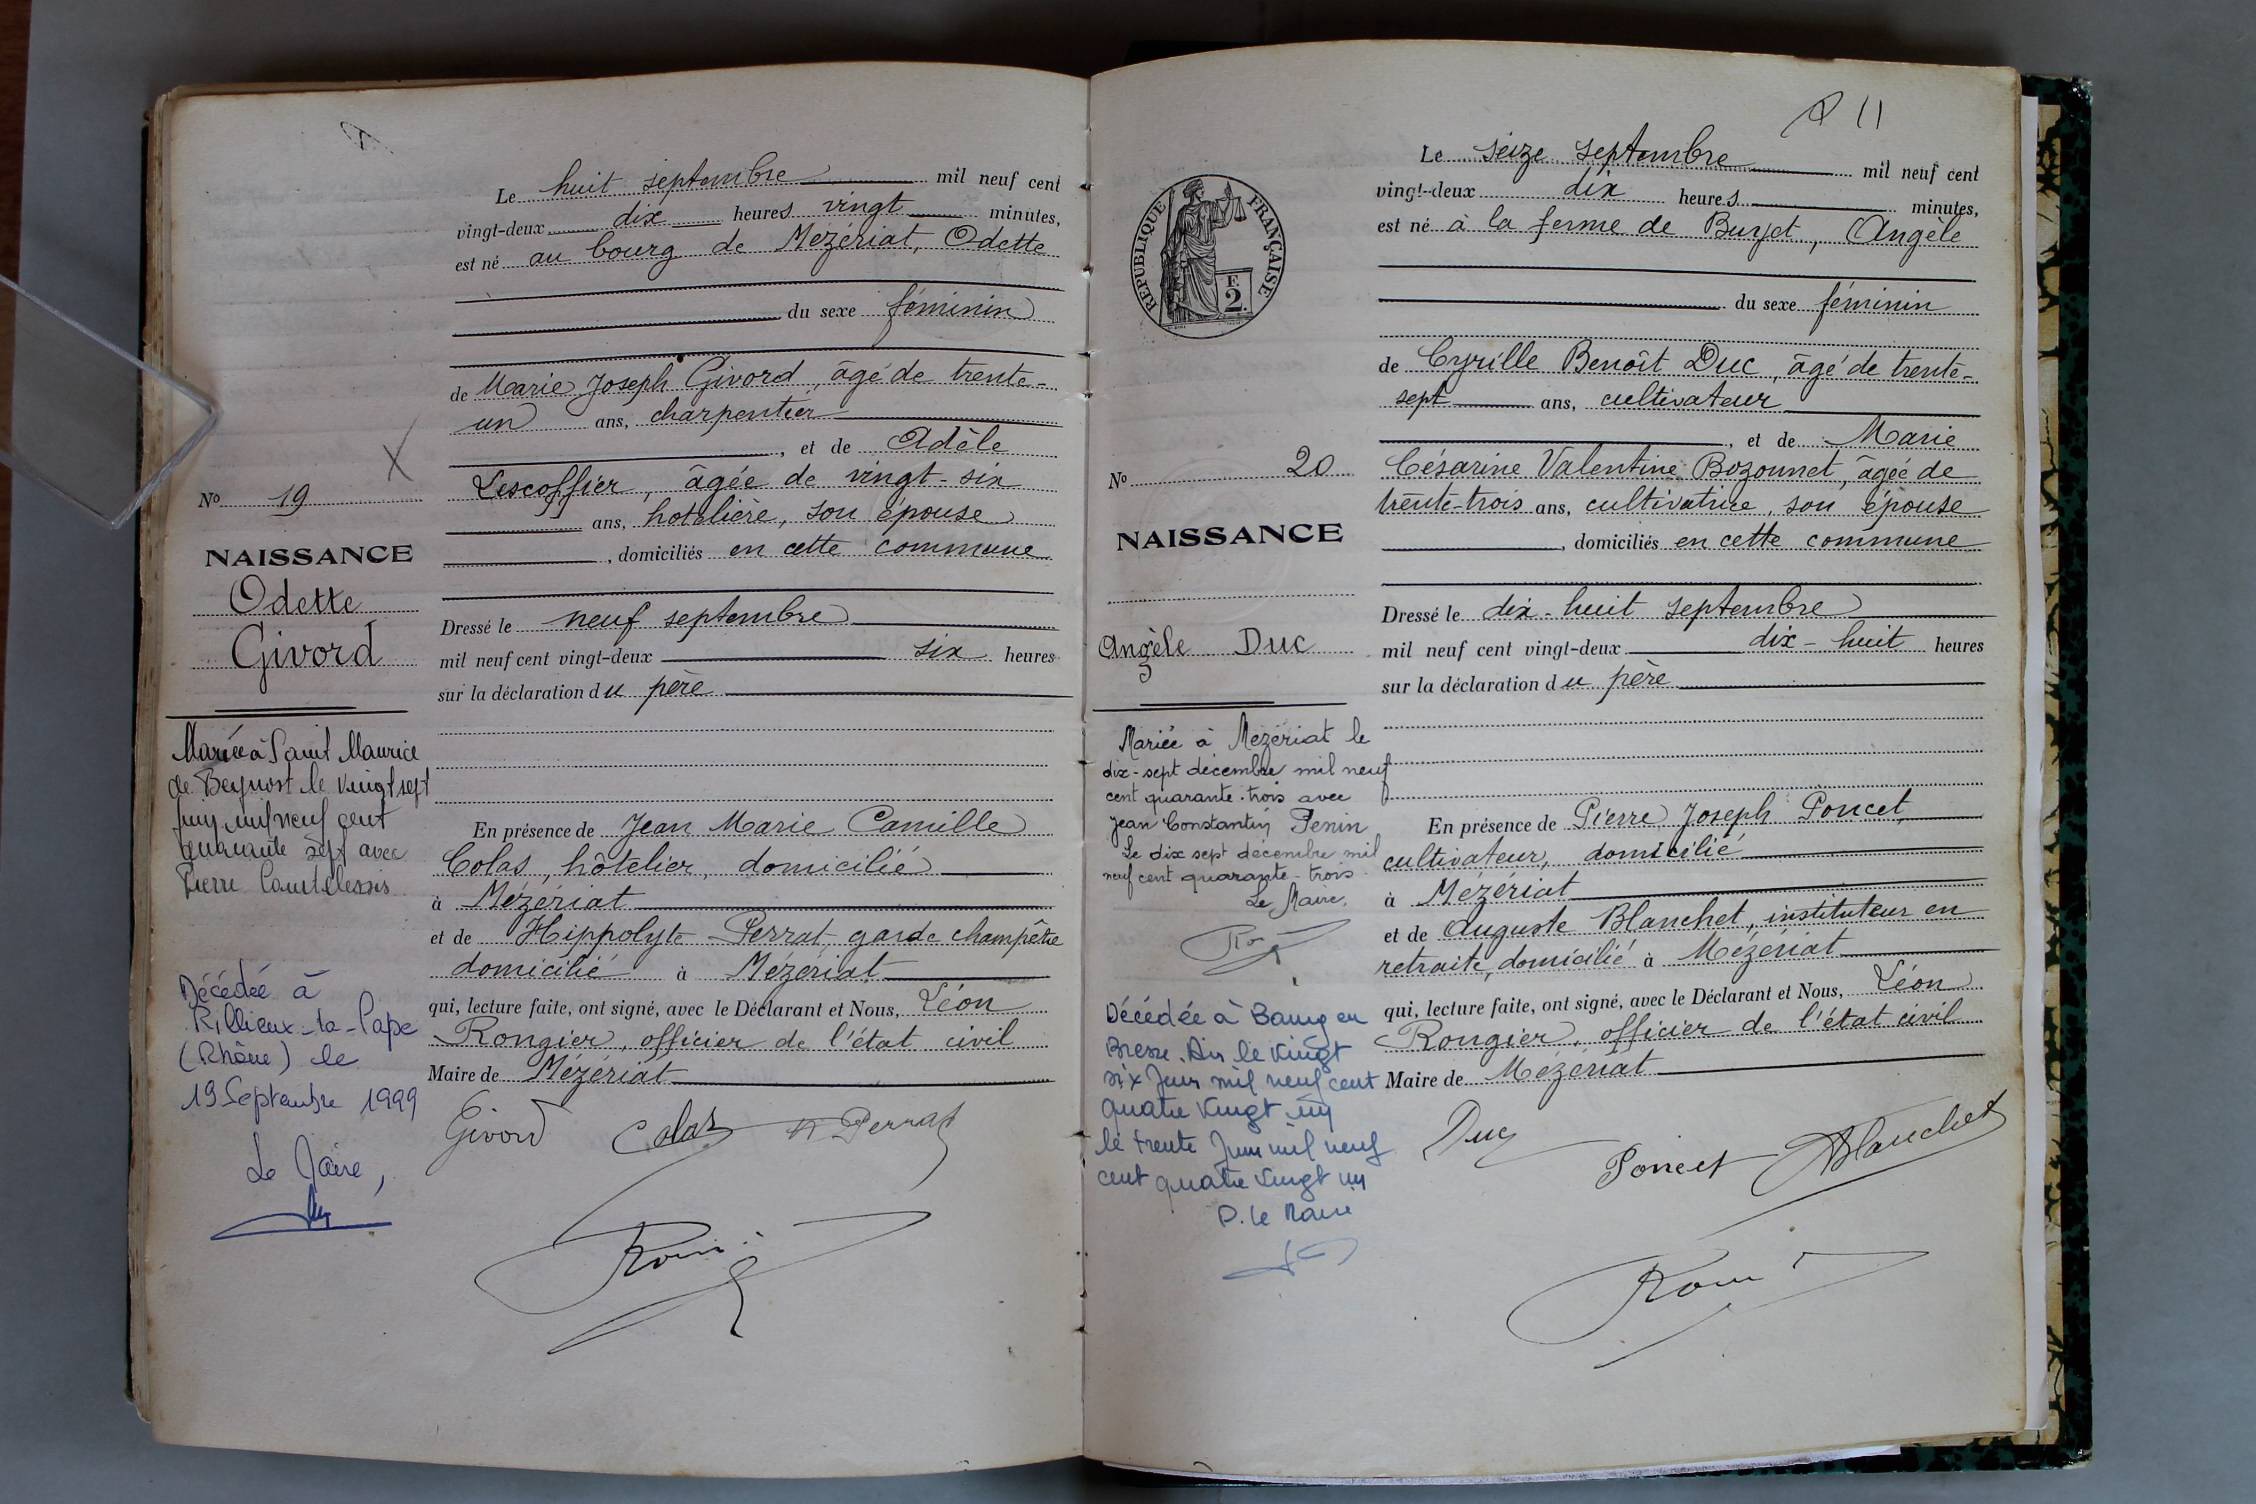 Le huit septembre mil neuf cent
vingt-deux dix heures vingt minutes,
est né au bourg de Mézériat, Odette
du sexe féminin
de Marie Joseph Givord, âgé de trente-
un ans, charpentier
, et de Adèle
Lescoffier, âgée de vingt-six
ans, hotelière, son épouse
, domiciliés en cette commune
Dressé le neuf septembre
mil neuf cent vingt-deux six heures
sur la déclaration du père
En présence de Jean Marie Camille
Colas, hôtelier, domicilié
à Mézériat
et de Hippolyte Perrat garde champêtre
domicilié à Mézériat
qui, lecture faite, ont signé, avec le Déclarant et Nous, Léon
Rongier, officier de l'état civil
Maire de Mézériat
Givord Colas H Perrat
No 19
NAISSANCE
Odette
Givord
Mariée à Saint Maurice
de Beynost le vingt sept
juin mil neuf cent
quarante sept avec
Pierre
Décédée à
Rillieux-la-Pape
(Rhône) le
19 Septembre 1999
Le Maire,
11
Le seize septembre mil neuf cent
vingt-deux dix heures minutes,
est né à la ferme de Burjet, Angèle
du sexe féminin
de Cyrille Benoît Duc, âgé de trente-
sept ans, cultivateur
, et de Marie
Césarine Valentine Bozonnet, âgée de
trente-trois ans, cultivatrice, son épouse
, domiciliés en cette commune
Dressé le dix-huit septembre
mil neuf cent vingt-deux dix-huit heures
sur la déclaration du père
En présence de Pierre Joseph Poncet,
cultivateur, domicilié
à Mézériat
et de Auguste Blanchet, instituteur en
retraite, domicilié à Mézériat
qui, lecture faite, ont signé, avec le Déclarant et Nous, Léon
Rongier, officier de l'état civil
Maire de Mézériat
Duc Poncet ABlanchet
RÉPUBLIQUE FRANÇAISE
F.
2
No 20
NAISSANCE
Angèle Duc
Mariée à Mézériat le
dix-sept décembre mil neuf
cent quarante-trois avec
Jean Constantin Penin
Le dix sept décembre mil
neuf cent quarante-trois
Le Maire,
Décédée à Bourg en
Bresse. Ain le vingt
six Juin mil neuf cent
quatre vingt un
le trente Juin mil neuf
cent quatre vingt un
P. le Maire